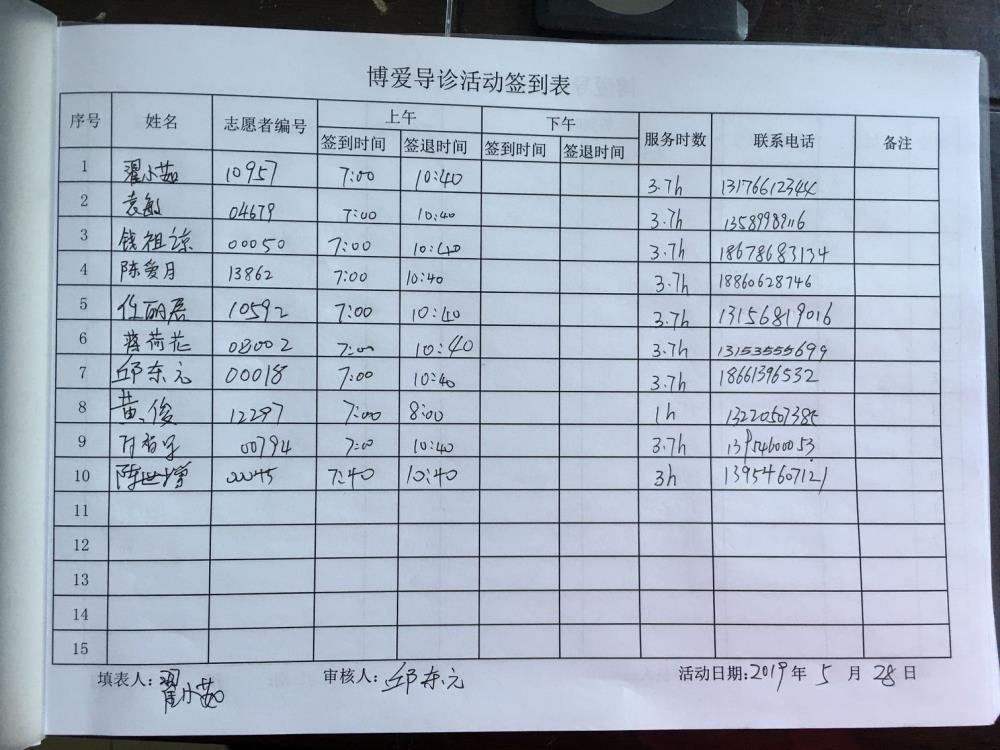 博爱导诊活动签到表
序号 姓名 志愿者编号 上午 下午 服务时数 联系电话 备注
签到时间 签退时间 签到时间 签退时间
1 翟小茹 10957 7:00 10:40 3.7h 13176612344
2 袁敏 04679 7:00 10:40 3.7h 13589989116
3 钱祖谅 00050 7:00 10:40 3.7h 18678683134
4 陈爱月 13862 7:00 10:40 3.7h 18860628746
5 任丽君 10592 7:00 10:40 3.7h 13156819016
6 蒋荷花 08002 7:00 10:40 3.7h 13153555699
7 邱东元 00018 7:00 10:40 3.7h 18661396532
8 黄俊 12297 7:00 8:00 1h 13220507385
9 00794 7:00 10:40 3.7h 13954600053
10 陈世增 00045 7:40 10:40 3h 13954607121
11
12
13
14
15
填表人：翟小茹 审核人：邱东元 活动日期：2019年 5 月 28 日